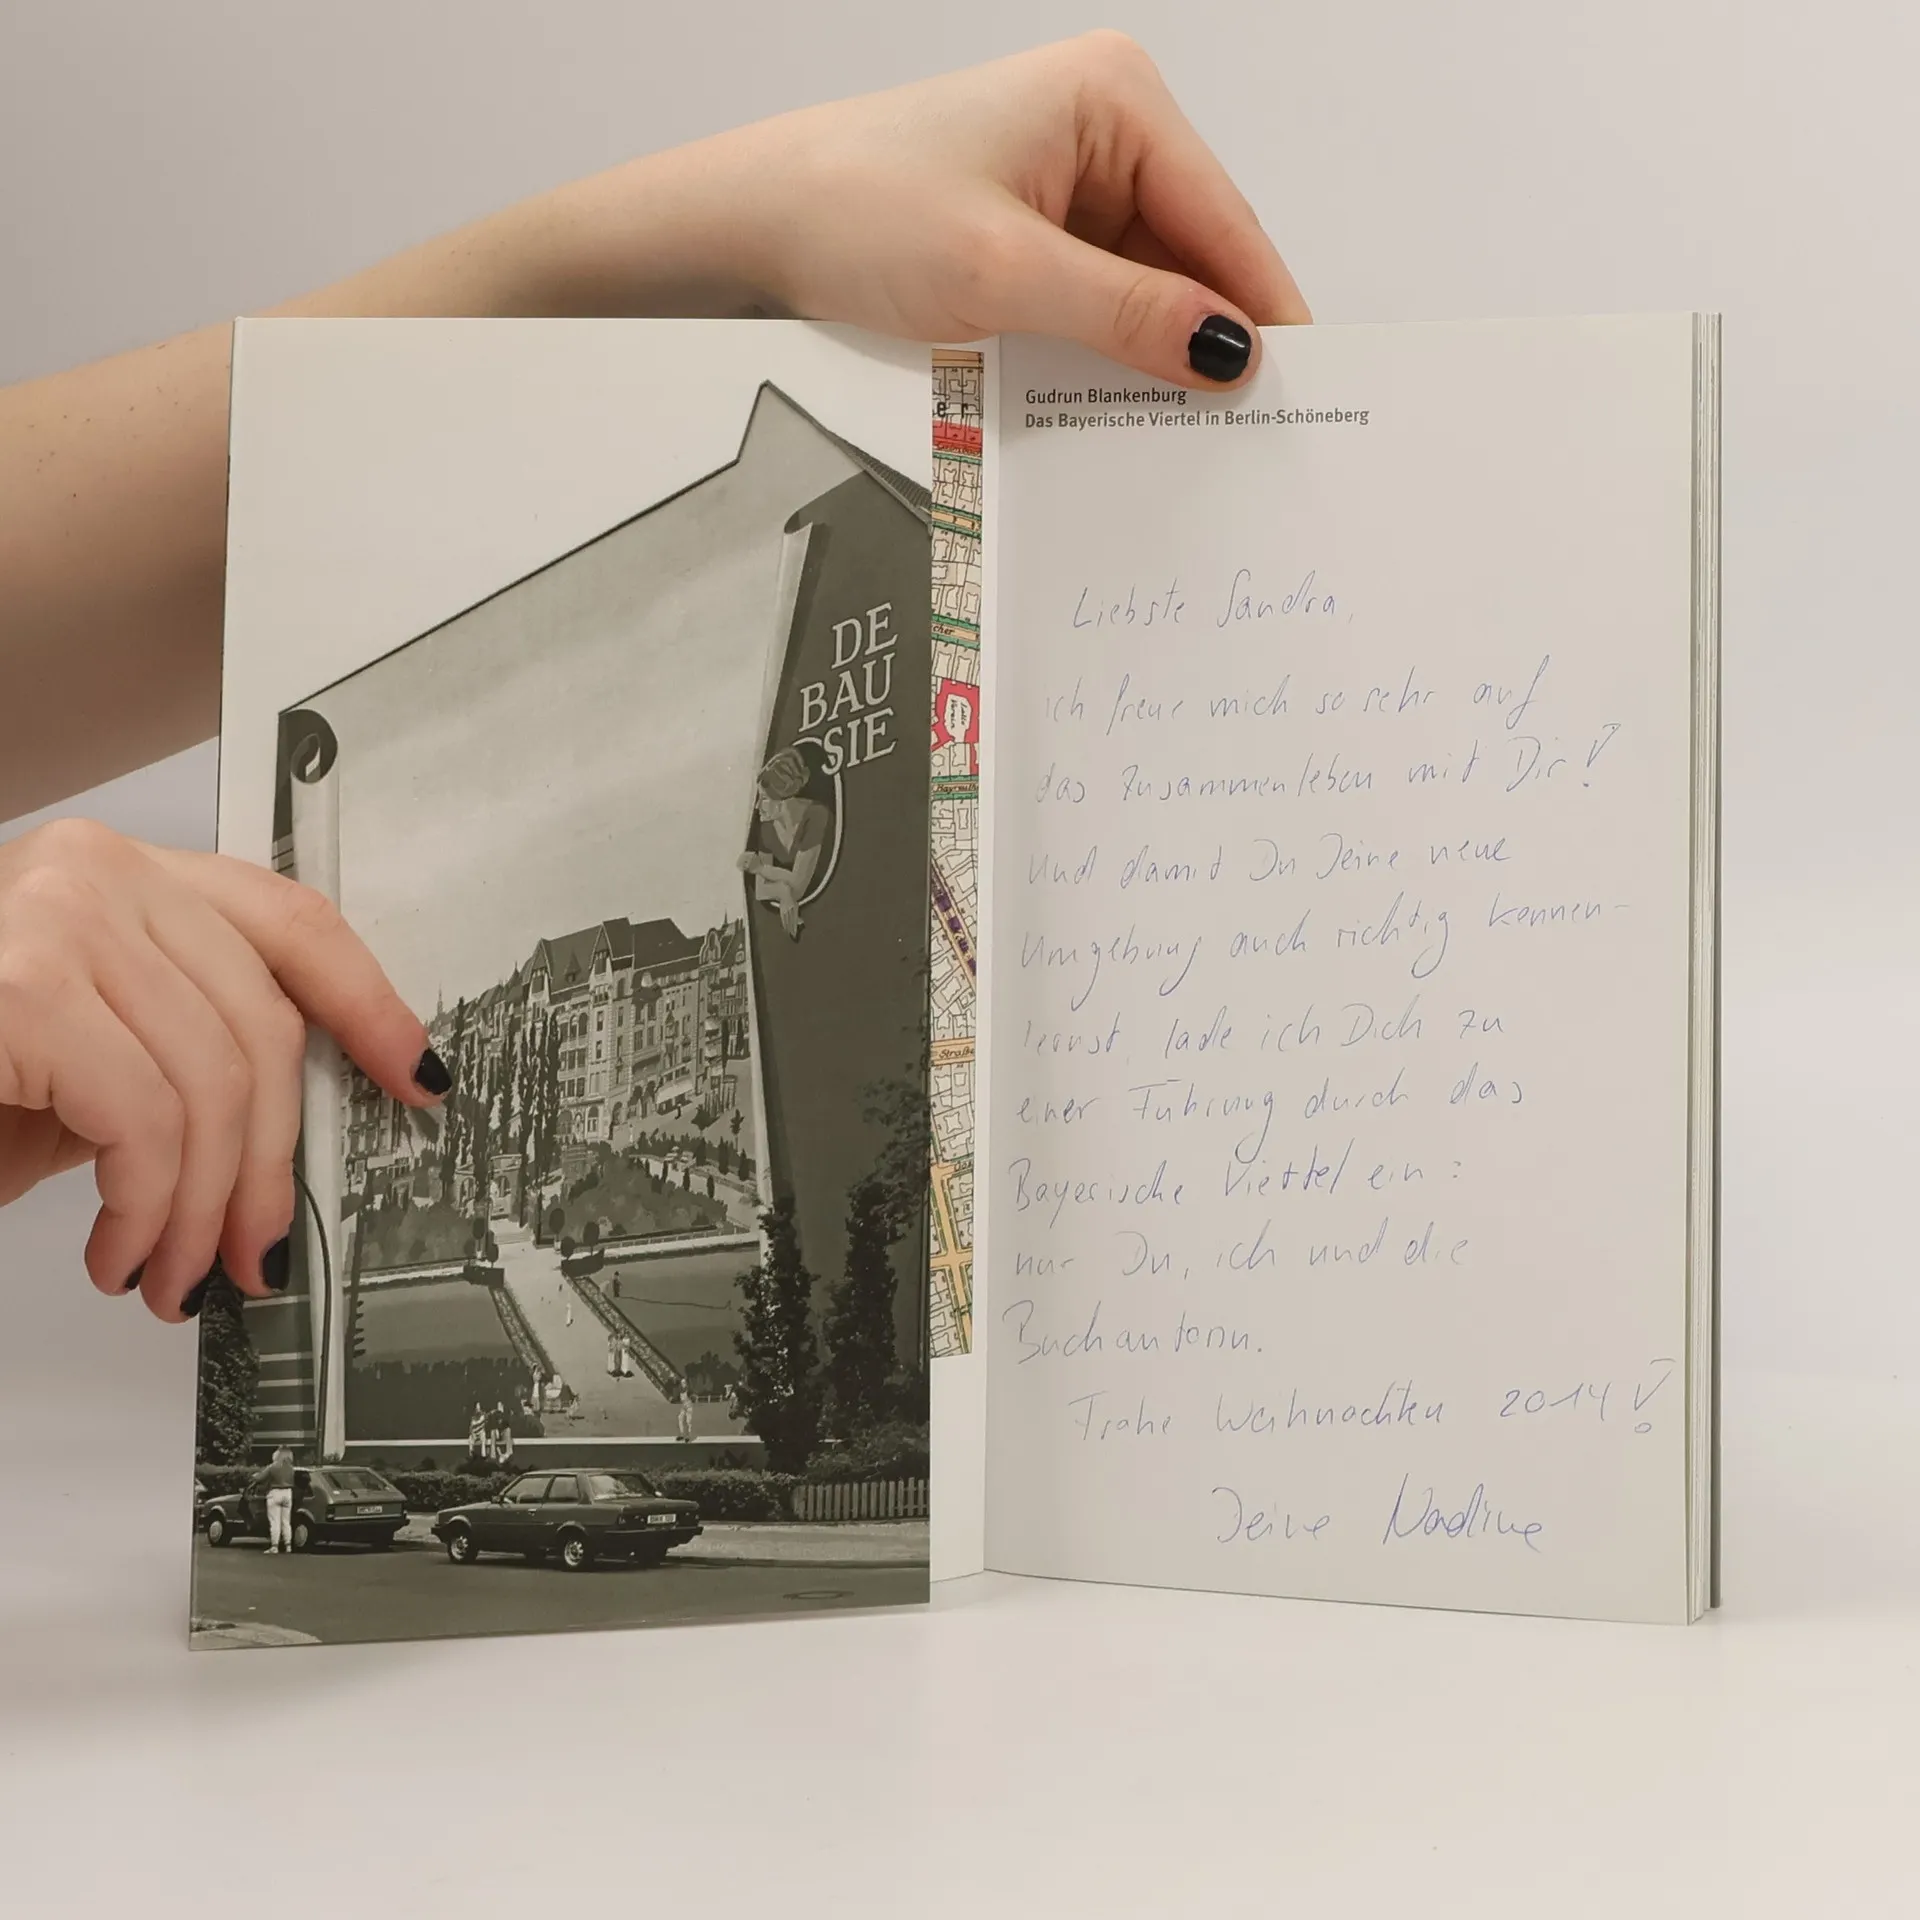 DE
BAU
SIE
er
Straße
Gudrun Blankenburg
Das Bayerische Viertel in Berlin-Schöneberg
Liebste Sandra,
ich freue mich so sehr auf
das Zusammenleben mit Dir!
Und damit Du Deine neue
Umgebung auch richtig kennen-
lernst, lade ich Dich zu
einer Führung durch das
Bayerische Viertel ein:
nur Du, ich und die
Buchautorin.
Frohe Weihnachten 2014!
Deine Nadine